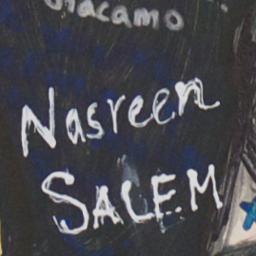 Giacamo
Nasreen
SALEM